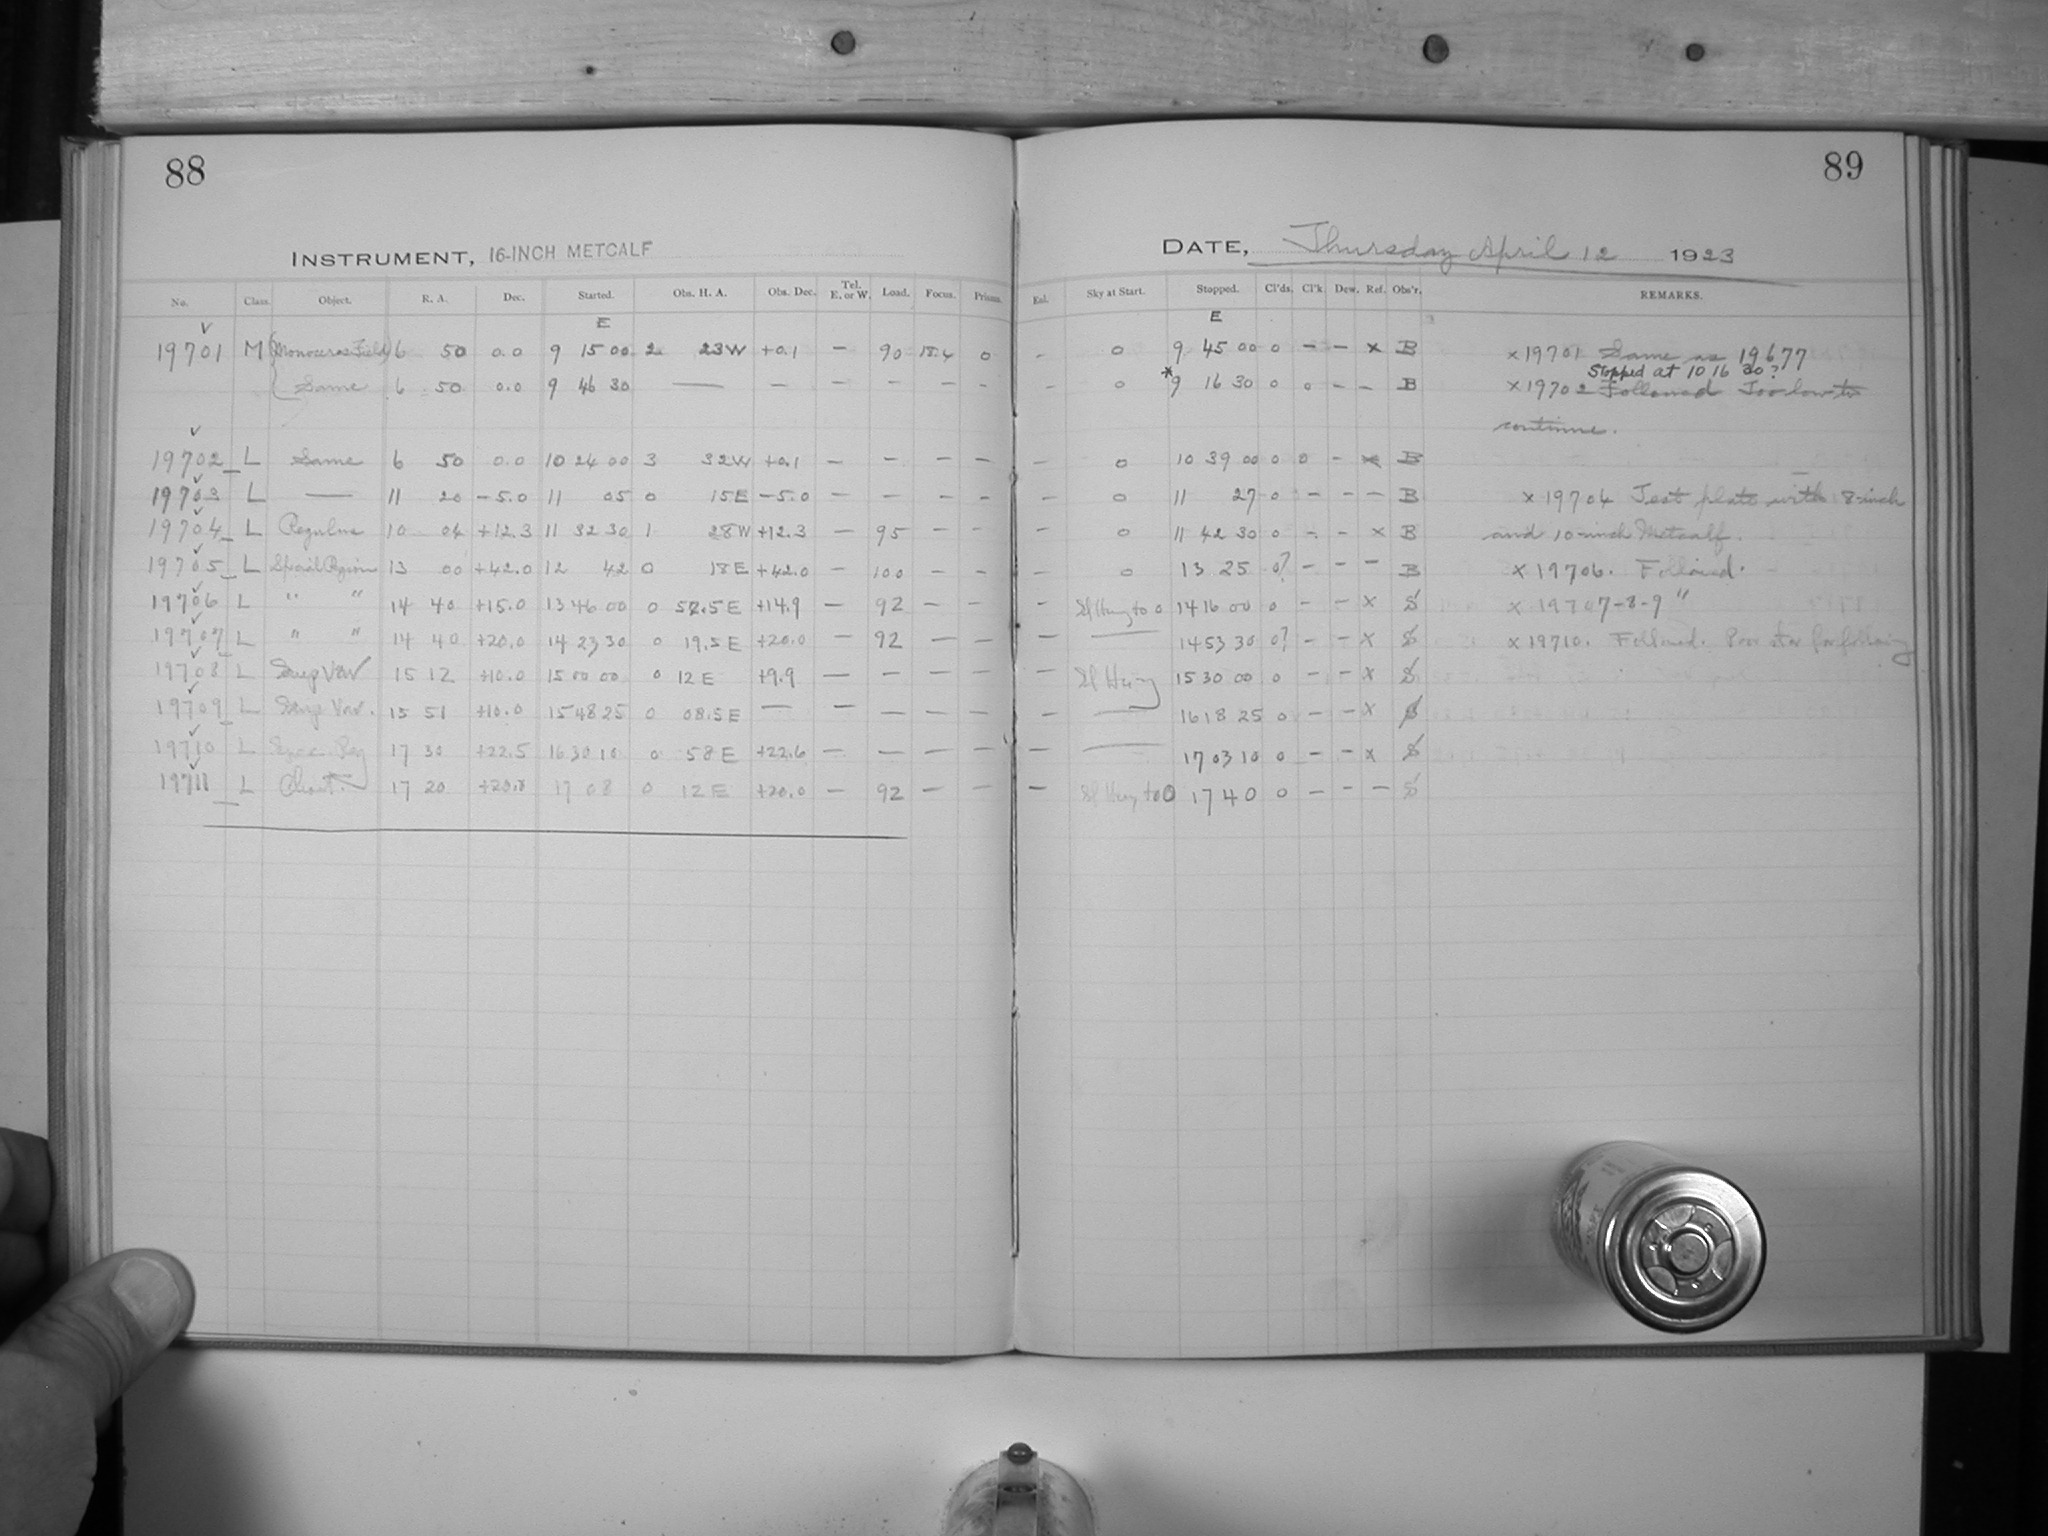 88
INSTRUMENT, 16-INCH METCALF
No. Class. Object. R. A. Dec. Started. Obs. H. A. Obs. Dec. Tel. E. or W. Load. Focus. Prisms.
E
19701 M Monoceros Field 6 50 0.0 9 15 00 2 23 W +0.1 — 90 18.4 0
Same 6 50 0.0 9 46 30 — — — — — —
19702 L Same 6 50 0.0 10 24 00 3 32 W +0.1 — — — —
19703 L — 11 20 -5.0 11 05 0 15 E -5.0 — — — —
19704 L Regulus 10 04 +12.3 11 32 30 1 28 W +12.3 — 95 — —
19705 L Special Region 13 00 +42.0 12 42 0 18 E +42.0 — 100 — —
19706 L " " 14 40 +15.0 13 46 00 0 52.5 E +14.9 — 92 — —
19707 L " " 14 40 +20.0 14 23 30 0 19.5 E +20.0 — 92 — —
19708 L Var 15 12 +10.0 15 00 00 0 12 E +9.9 — — — —
19709 L Var. 15 51 +10.0 15 48 25 0 08.5 E — — — — —
19710 L Spec. Reg 17 30 +22.5 16 30 10 0 58 E +22.6 — — — —
19711 L Chart 17 20 +20.0 17 08 0 12 E +20.0 — 92 — —
89
DATE, Thursday April 12 1923
Eal. Sky at Start. Stopped. Cl'ds. Cl'k. Dew. Ref. Obs'r. REMARKS.
E
— 0 9 45 00 0 — — x B x 19701 Same as 19677
Stopped at 10 16 30?
— 0 *9 16 30 0 0 — — B x 19702 Followed Too low to
continue.
— 0 10 39 00 0 0 — x B
— 0 11 27 0 — — — B x 19704 Test plate with 8-inch
— 0 11 42 30 0 — — x B and 10-inch Metcalf.
— 0 13 25 0? — — — B x 19706. Followed.
— Sl Hazy to 0 14 16 00 0 — — x S x 19707-8-9 "
— — 14 53 30 0? — — x S x 19710. Followed. Poor star for following
— Sl Hazy 15 30 00 0 — — x S
— — 16 18 25 0 — — x S
— — 17 03 10 0 — — x S
— Sl Hazy to 0 17 40 0 — — — S